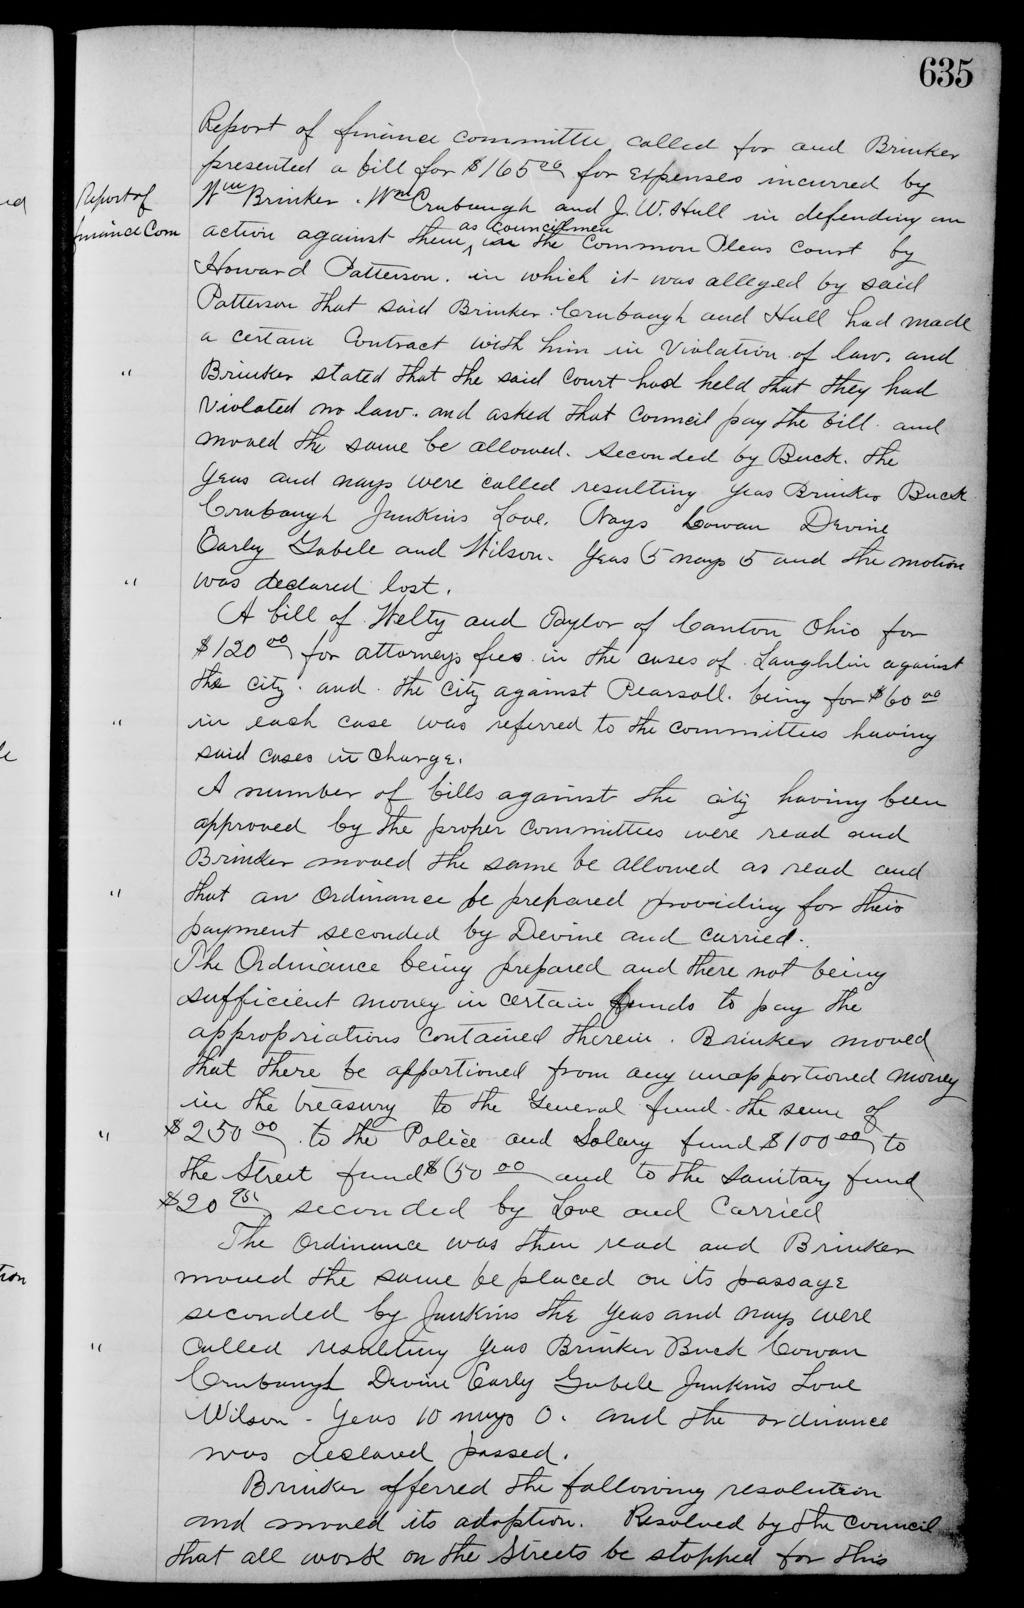 635
Report of finance committee called for and Brinker
presented a bill for $165 00 for expenses incurred by
Report of
finance Com
Wm Brinker . Wm Crubaugh and J. W. Hull in defending an
action against them as councilmen in the Common Pleas court by
Howard Patterson. in which it was alleged by said
Patterson that said Brinker. Crubaugh and Hull had made
a certain Contract with him in violation of law. and
"
Brinker stated that the said court had held that they had
violated no law. and asked that council pay the bill. and
moved the same be allowed. seconded by Buck. the
yeas and nays were called resulting yeas Brinker Buck
Crubaugh Junkins Love. Nays Cowan Devine
Early Gabele and Wilson. yeas 5 nays 5 and the motion
"
was declared lost.
A bill of Welty and Taylor of Canton Ohio for
$120 00 for attorneys fees in the cases of Laughlin against
the city. and. the city against Pearsoll. being for $60 00
"
in each case was referred to the committees having
said cases in charge.
A number of bills against the city having been
approved by the proper committees were read and
Brinker moved the same be allowed as read and
"
that an ordinance be prepared providing for their
payment seconded by Devine and carried.
The Ordinance being prepared and there not being
sufficient money in certain funds to pay the
appropriations contained therein. Brinker moved
that there be apportioned from any unapportioned money
in the treasury to the General fund the sum of
"
$250 00. to the Police and Salary fund $100 00 to
the Street fund $650 00 and to the sanitary fund
$20 seconded by Love and Carried
The Ordinance was then read and Brinker
moved the same be placed on its passage
seconded by Junkins the yeas and nays were
"
called resulting yeas Brinker Buck Cowan
Crubaugh Devine Early Gabele Junkins Love
Wilson - Yeas 10 nays 0. and the ordinance
was declared passed.
Brinker offerred the following resolution
and moved its adoption. Resolved by the council
that all work on the Streets be stopped for this